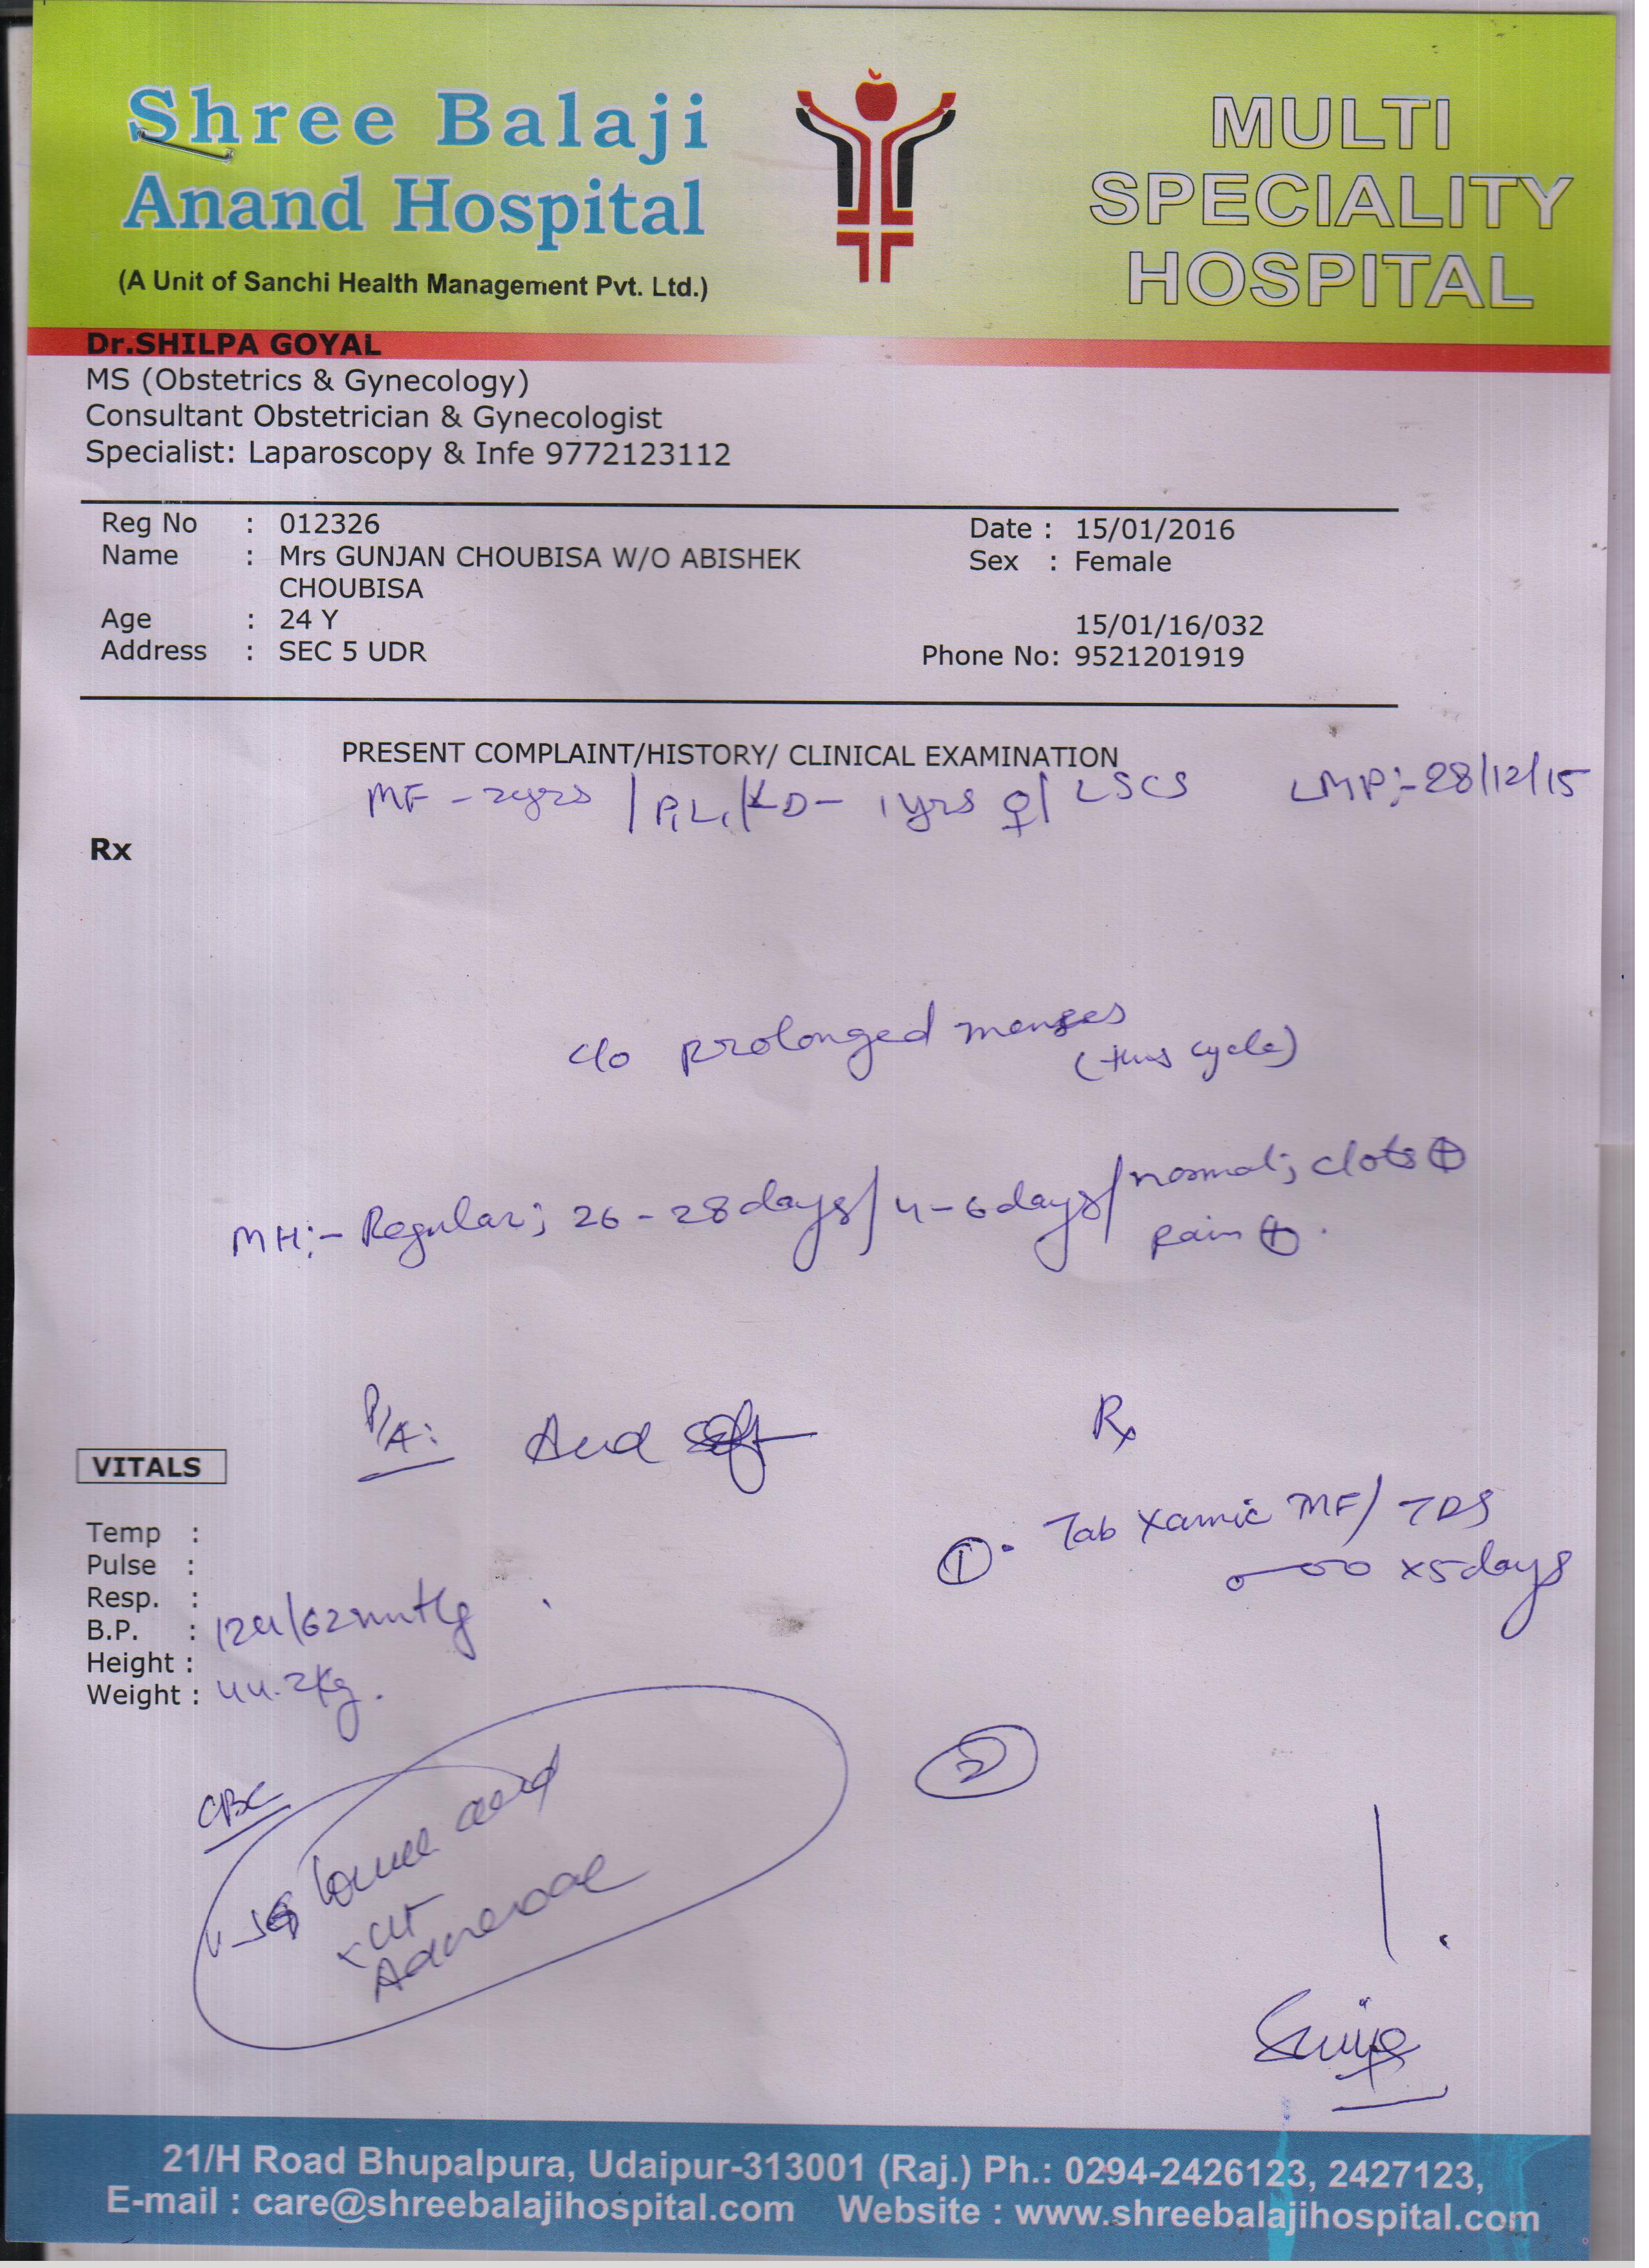 Shree Balaji
Anand Hospital
(A Unit of Sanchi Health Management Pvt. Ltd.)
MULTI
SPECIALITY
HOSPITAL
Dr.SHILPA GOYAL
MS (Obstetrics & Gynecology)
Consultant Obstetrician & Gynecologist
Specialist: Laparoscopy & Infe 9772123112
Reg No : 012326 Date : 15/01/2016
Name : Mrs GUNJAN CHOUBISA W/O ABISHEK Sex : Female
CHOUBISA
Age : 24 Y 15/01/16/032
Address : SEC 5 UDR Phone No: 9521201919
PRESENT COMPLAINT/HISTORY/ CLINICAL EXAMINATION
MF - 2yrs / P1L1 / LD - 1yrs ♀ / LSCS LMP:- 28/12/15
Rx
c/o prolonged menses
(this cycle)
MH:- Regular; 26-28days/4-6days/normal; clots ⊕
pain ⊕.
P/A: soft
Rx
VITALS
① Tab Xamic MF/TDS
x5days
Temp :
Pulse :
Resp. :
B.P. : 124/62mmHg
Height :
Weight : 44.2kg.
②
CBC
USG lower abd
Adnexae
21/H Road Bhupalpura, Udaipur-313001 (Raj.) Ph.: 0294-2426123, 2427123,
E-mail : care@shreebalajihospital.com Website : www.shreebalajihospital.com